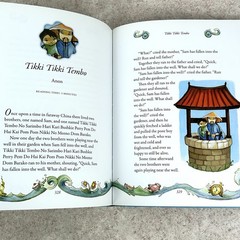 Tikki Tikki Tembo
Anon
ONCE upon a time in faraway China there lived two
brothers, one named Sam, and one named Tikki Tikki
Tembo No Sarimbo Hari Kari Bushkie Perry Pem Do
Hai Kai Pom Pom Nikki No Meeno Dom Barako.
Now one day the two brothers were playing near the
well in their garden when Sam fell into the well, and
Tikki Tikki Tembo No Sarimbo Hari Kari Bushkie
Perry Pem Do Hai Kai Pom Pom Nikki No Meeno
Dom Barako ran to his mother, shouting, "Quick, Sam
has fallen into the well. What shall we do?"
Tikki Tikki Tembo
"What?" cried the mother, "Sam has fallen
into the well? Run and tell father!"
Together they ran to the father and cried,
"Quick, Sam has fallen into the well. What
shall we do?"
"Sam has fallen into the well?" cried the
father. "Run and tell the
gardener!"
Then they ran to the
gardener and shouted,
"Quick, Sam has fallen
into the well. What shall
we do?"
"Sam has fallen into the
well?" cried the
gardener, and then he
quickly fetched a ladder
and pulled the poor boy
from the well, who was
wet and cold and
frightened, and ever so
happy to still be alive.
Some time afterward
the two brothers were
again playing near the well,